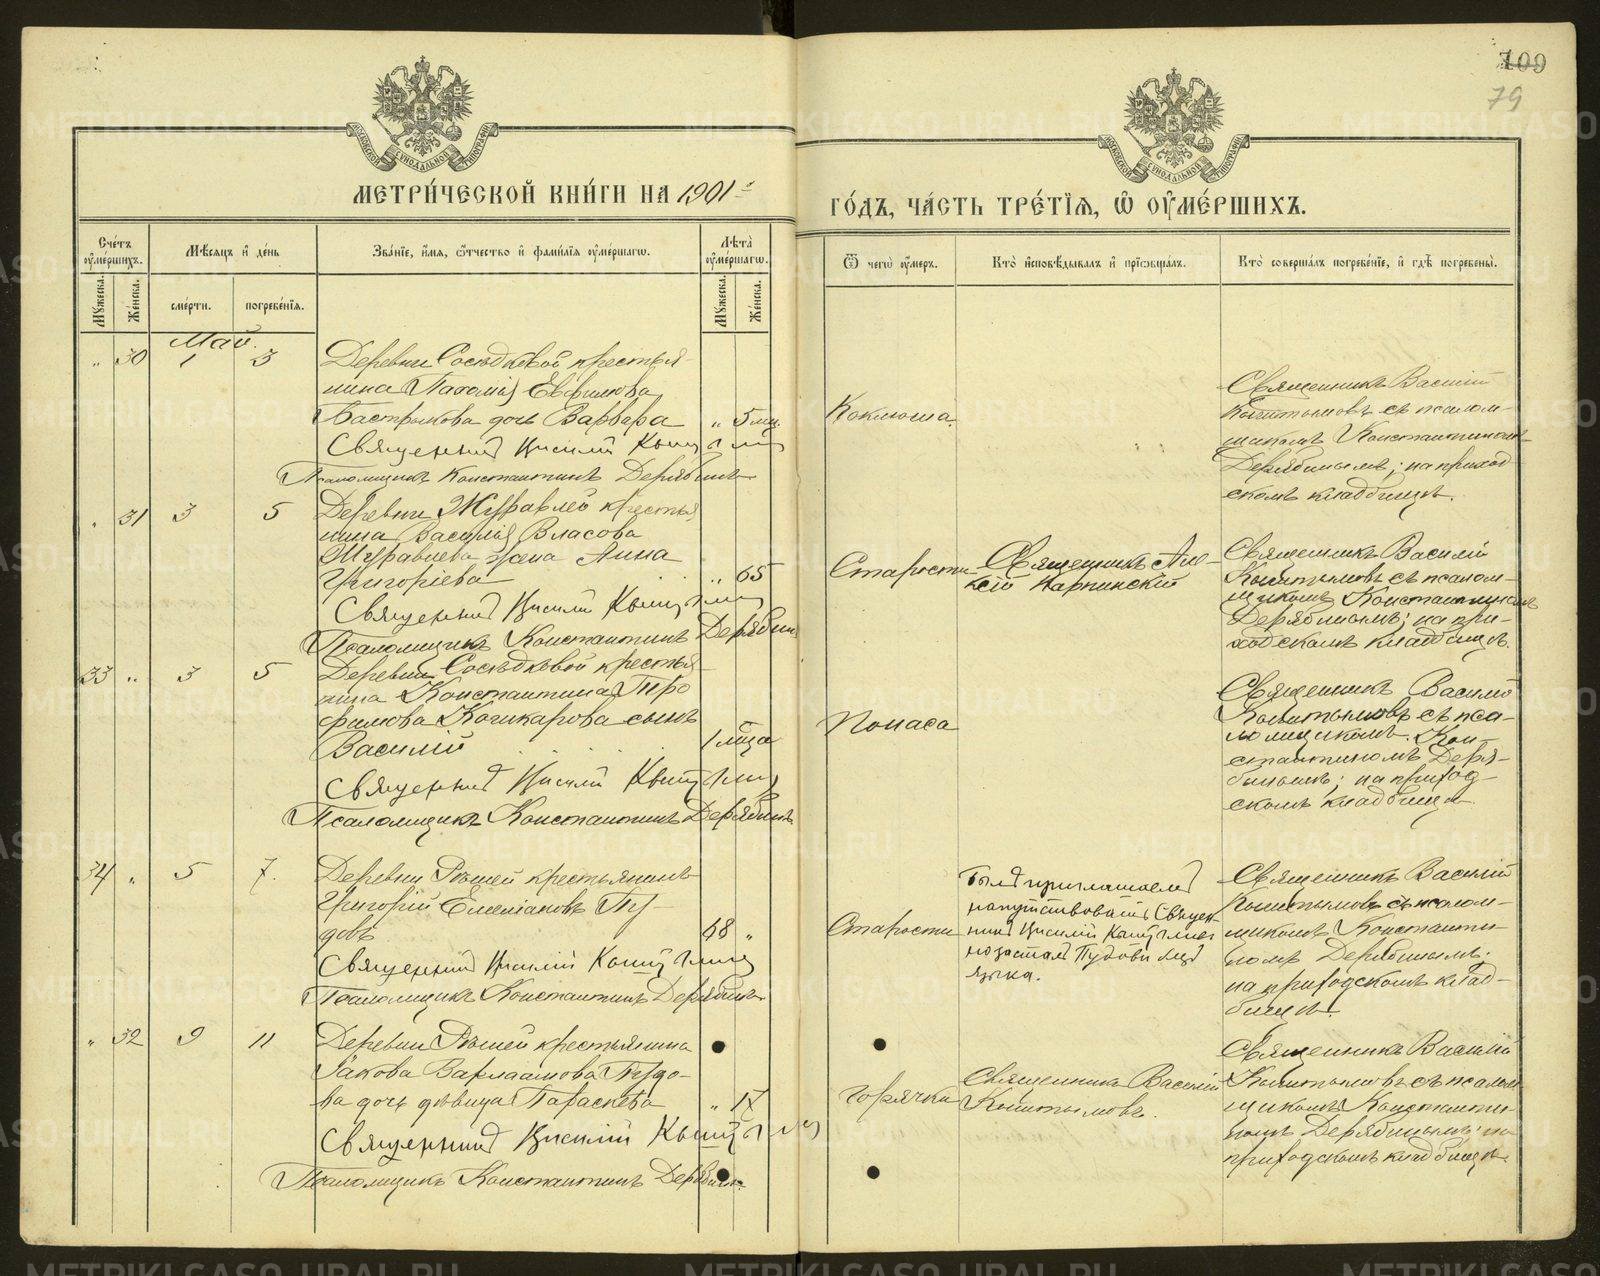 109
79
МЕТРИ́ЧЕСКОЙ КНИ́ГИ НА 1901 й
ГО́ДЪ, ЧА́СТЬ ТРЕ́ТЇѦ, Ѡ҆ ОУ҆МЕ́РШИХЪ.
Сче́тъ оу҆ме́ршихъ.
Мꙋжеска.
Же́нска.
Мѣ́сяцъ и҆ де́нь
сме́рти.
погребе́нїя.
Зва́нїе, и҆́мя, ѻ҆́тчество и҆ фами́лїя оу҆ме́ршагѡ.
Лѣта̀ оу҆ме́ршагѡ.
Мꙋжеска.
Же́нска.
Ѿ чегѡ̀ оу҆́меръ.
Кто̀ и҆сповѣ́дывалъ и҆ прїѡбща́лъ.
Кто̀ соверша́лъ погребе́нїе, и҆ гдѣ̀ погребены̀.
Май.
" 30 1 3
Деревни Сосѣдковой крестья-
нина Пахомія Евфимова
Бастрыкова дочь Варвара " 5 мц.
Священникъ Василій Кыштымовъ
Псаломщикъ Константинъ Дерябинъ
Коклюша.
Священникъ Василій
Кыштымовъ съ псалом-
щикомъ Константиномъ
Дерябинымъ; на приход-
скомъ кладбищѣ.
" 31 3 5
Деревни Журавлей крестья
нина Василія Власова
Журавлева жена Анна
Григоріева " 65
Священникъ Василій Кыштымовъ
Псаломщикъ Константинъ Дерябинъ
Старости
Священникъ Але-
ксій Карпинскій
Священникъ Василій
Кыштымовъ съ псалом-
щикомъ Константиномъ
Дерябинымъ; на при-
ходскомъ кладбищѣ.
33 " 3 5
Деревни Сосѣдковой крестья
нина Константина Тро
фимова Кошкарова сынъ
Василій 1 мѣца
Священникъ Василій Кыштымовъ
Псаломщикъ Константинъ Дерябинъ.
Поноса
Священникъ Василій
Кыштымовъ съ пса-
ломщикомъ Кон-
стантиномъ Деря-
бинымъ; на приход-
скомъ кладбищѣ
34 " 5 7.
Деревни Рѣшей крестьянинъ
Григорій Емеліановъ Пу-
довъ 68 "
Священникъ Василій Кыштымовъ
Псаломщикъ Константинъ Дерябинъ.
Старости
Былъ приглашаемъ
напутствовать Священ-
никъ Василій Кыштымовъ
но засталъ Пудова безъ
языка.
Священникъ Василій
Кыштымовъ съ псалом-
щикомъ Константи-
номъ Дерябинымъ.
на приходскомъ клад-
бищѣ.
" 32 9 11
Деревни Рѣшей крестьянина
Іакова Варлаамова Пудо-
ва дочь дѣвица Параскева " 17
Священникъ Василій Кыштымовъ
Псаломщикъ Константинъ Дерябинъ.
Горячки
Священникъ Василій
Кыштымовъ.
Священникъ Василій
Кыштымовъ съ псалом
щикомъ Константи-
номъ Дерябинымъ; на
приходскомъ кладбищѣ.